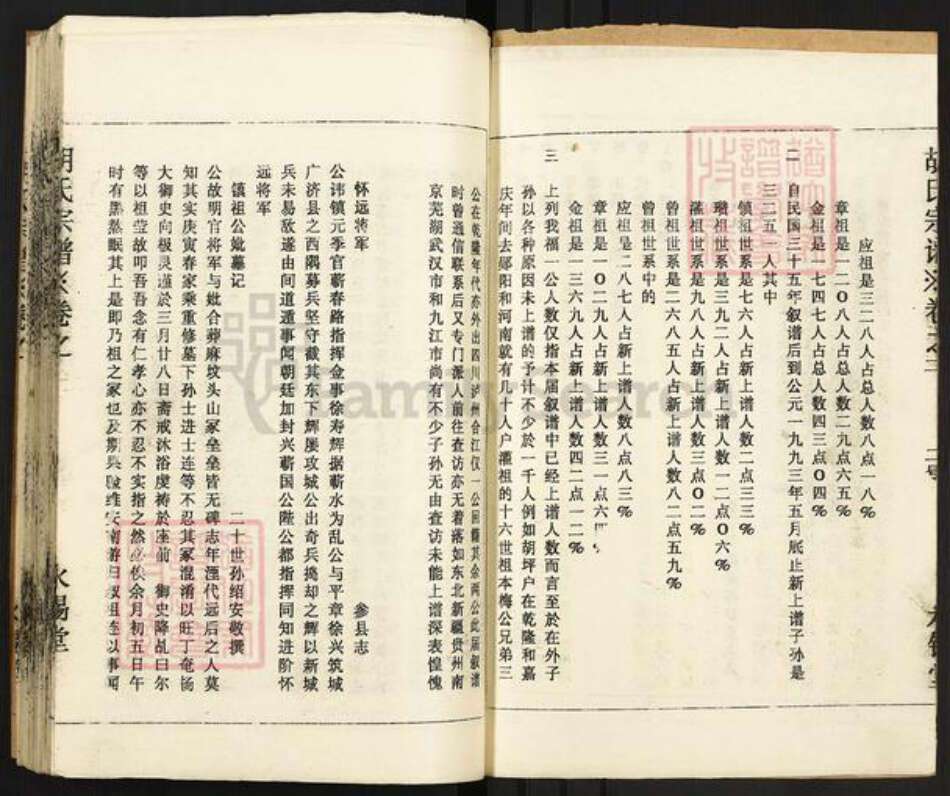 胡氏宗谱
卷之二
应祖是三二八人占总人数八点一八%
章祖是一二〇八人占总人数二九点六五%
金祖是一七四七人占总人数四三点〇四%
二 自民国三十五年叙谱后到公元一九九三年五月底止新上谱子孙是
三二五一人其中
镇祖世系是七六人占新上谱人数二点三三%
璔祖世系是三九二人占新上谱人数一二点〇六%
灌祖世系是九八人占新上谱人数三点〇二%
曾祖世系是二六八五人占新上谱人数八二点五九%
曾祖世系中的
应祖是二八七人占新上谱人数八点八三%
章祖是一〇二九人占新上谱人数三一点六
金祖是一三六九人占新上谱人数四二点一二%
三 上列我福一公人数仅指本届叙谱中已经上谱人数而言至於在外子
孙以各种原因未上谱的予计不少於一千人例如胡坪户在乾隆和嘉
庆年间去郧阳和河南就有几十人户灌祖的十六世祖本梅公兄弟三
公在乾隆年代亦外出四川泸州合江仅一公回籍其余两公此届叙谱
时曾通信联系后又专门派人前往查访亦无着落如东北新疆贵州南
京芜湖武汉市和九江市尚有不少子孙无由查访未能上谱深表惶愧
怀远将军 参县志
公讳镇元季官蕲春路指挥佥事徐寿辉据蕲水为乱公与平章徐兴筑城
广济县之西隅募兵坚守截其东下辉屡攻城公出奇兵捣却之辉以新城
兵未易敌遂由间道遁事闻朝廷加封兴蕲国公陞公都指挥同知进阶怀
远将军
镇祖公妣墓记 二十世孙绍安敬撰
公故明官将军与妣合葬麻坟头山冢垒垒皆无碑志年湮代远后之人莫
知其实庚寅春家乘重修墓下孙士进士连等不忍其冢混淆以旺丁奄扬
大御史向极灵谨於三月廿八日斋戒沐浴虔祷於座前 御史降乩曰尔
等以祖茔故叩吾吾念有仁孝心亦不忍不实指之然必俟余月初五日午
时有黑熬眠其上是即乃祖之冢也及期
胡氏宗谱
卷之